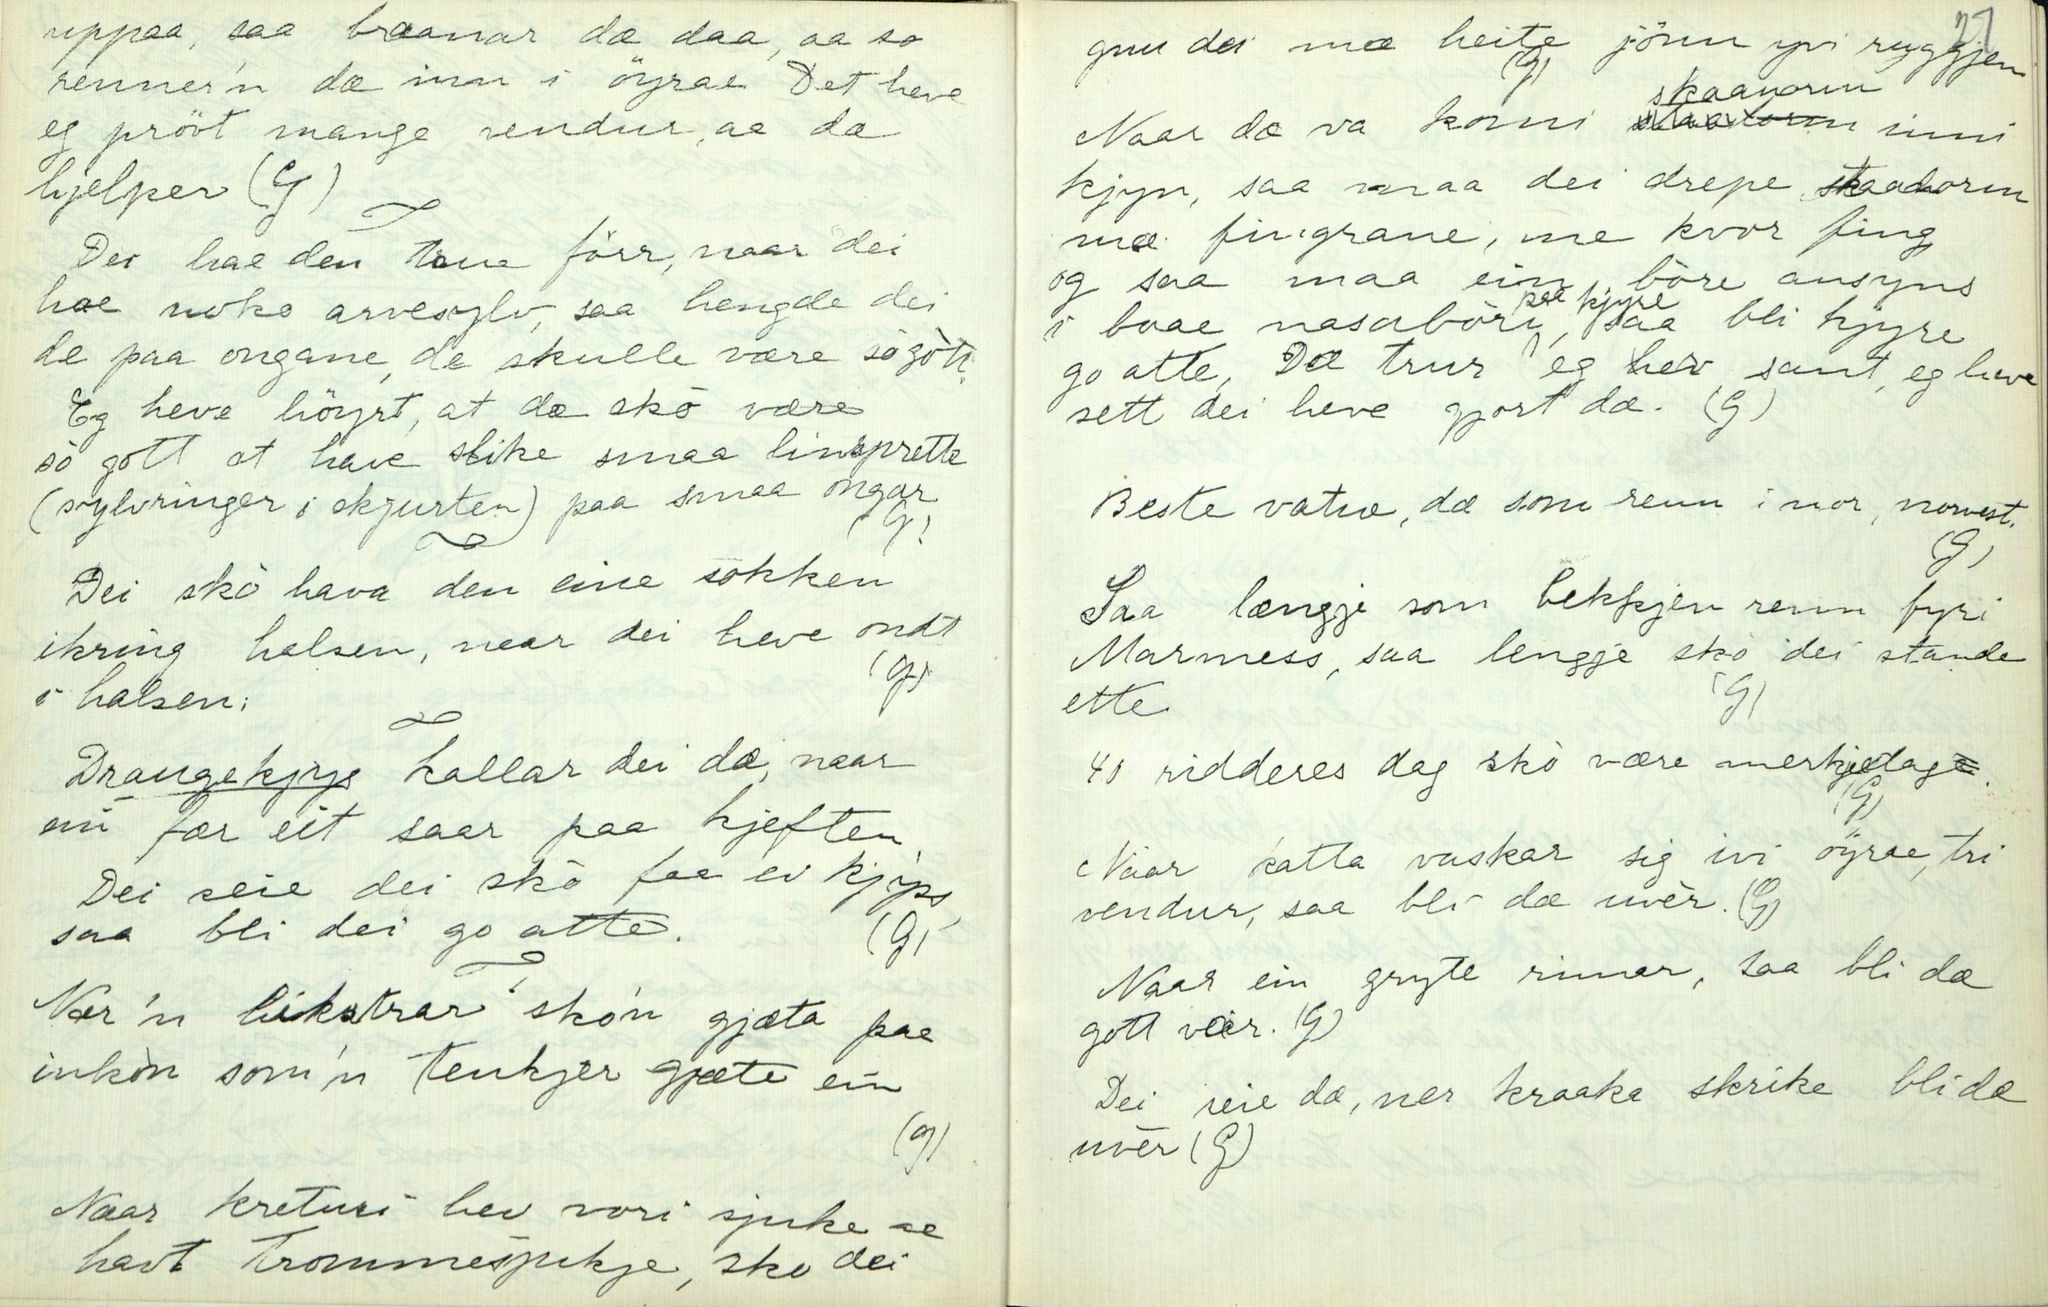 uppaa, saa braanar dæ daa, aa so
renner'n dæ inn i öyrae Det heve
eg prövt mange vendur, aa dæ
hjelper (G)
Dei hae den true förr, naar dei
hae noko arvesylv, saa hengde dei
de paa ongane, de skulle være sò gòtt.
Eg heve höyrt, at dæ skò være
sò gott at have slike smaa linsprette
(sylvringer i skjurten) paa smaa ongar
(G)
Dei skò hava den eine sokken
ikring halsen, naar dei heve ondt
i halsen. (G)
Draugekjys kallar dei dæ, naar
ein fær eit saar paa kjeften
Dei seie dei skò faa ei kjyps,
saa bli dei go atte. (G)
Nær'n likstrar skò'n gjæta paa
inkòn som'n tenkjer gjæte ein
(G)
Naar kreturi hev vori sjuke ae
havt trommesjukje, sko dei
27
gnu dei mæ heite jönn yvi ryggjen
(G)
skaavorm
Naar dæ va komi inni
kjyn, saa maa dei drepe skaavorm
mæ fingrane, me kvor fing
og saa maa ein bòre ansyns
i baae nasabòri, paa kjyre saa bli kjyre
go atte, Dæ trur eg hev sant, eg heve
sett dei heve gjort dæ. (G)
Beste vatne, dæ som renn i nor, norvest.
(G)
Saa længje som bekkjen renn fyri
Marmess, saa lengje skò dei stande
ette (G)
40 ridderes dag skò være merkjedag.
(G)
Náar katta vaskar sig ivi öyrae, tri
vendur, saa bli dæ uvèr. (G)
Naar ein gryte rinnar, saa bli dæ
gott veir. (G)
Dei seie dæ, ner kraaka skrike bli dæ
uvèr (G)